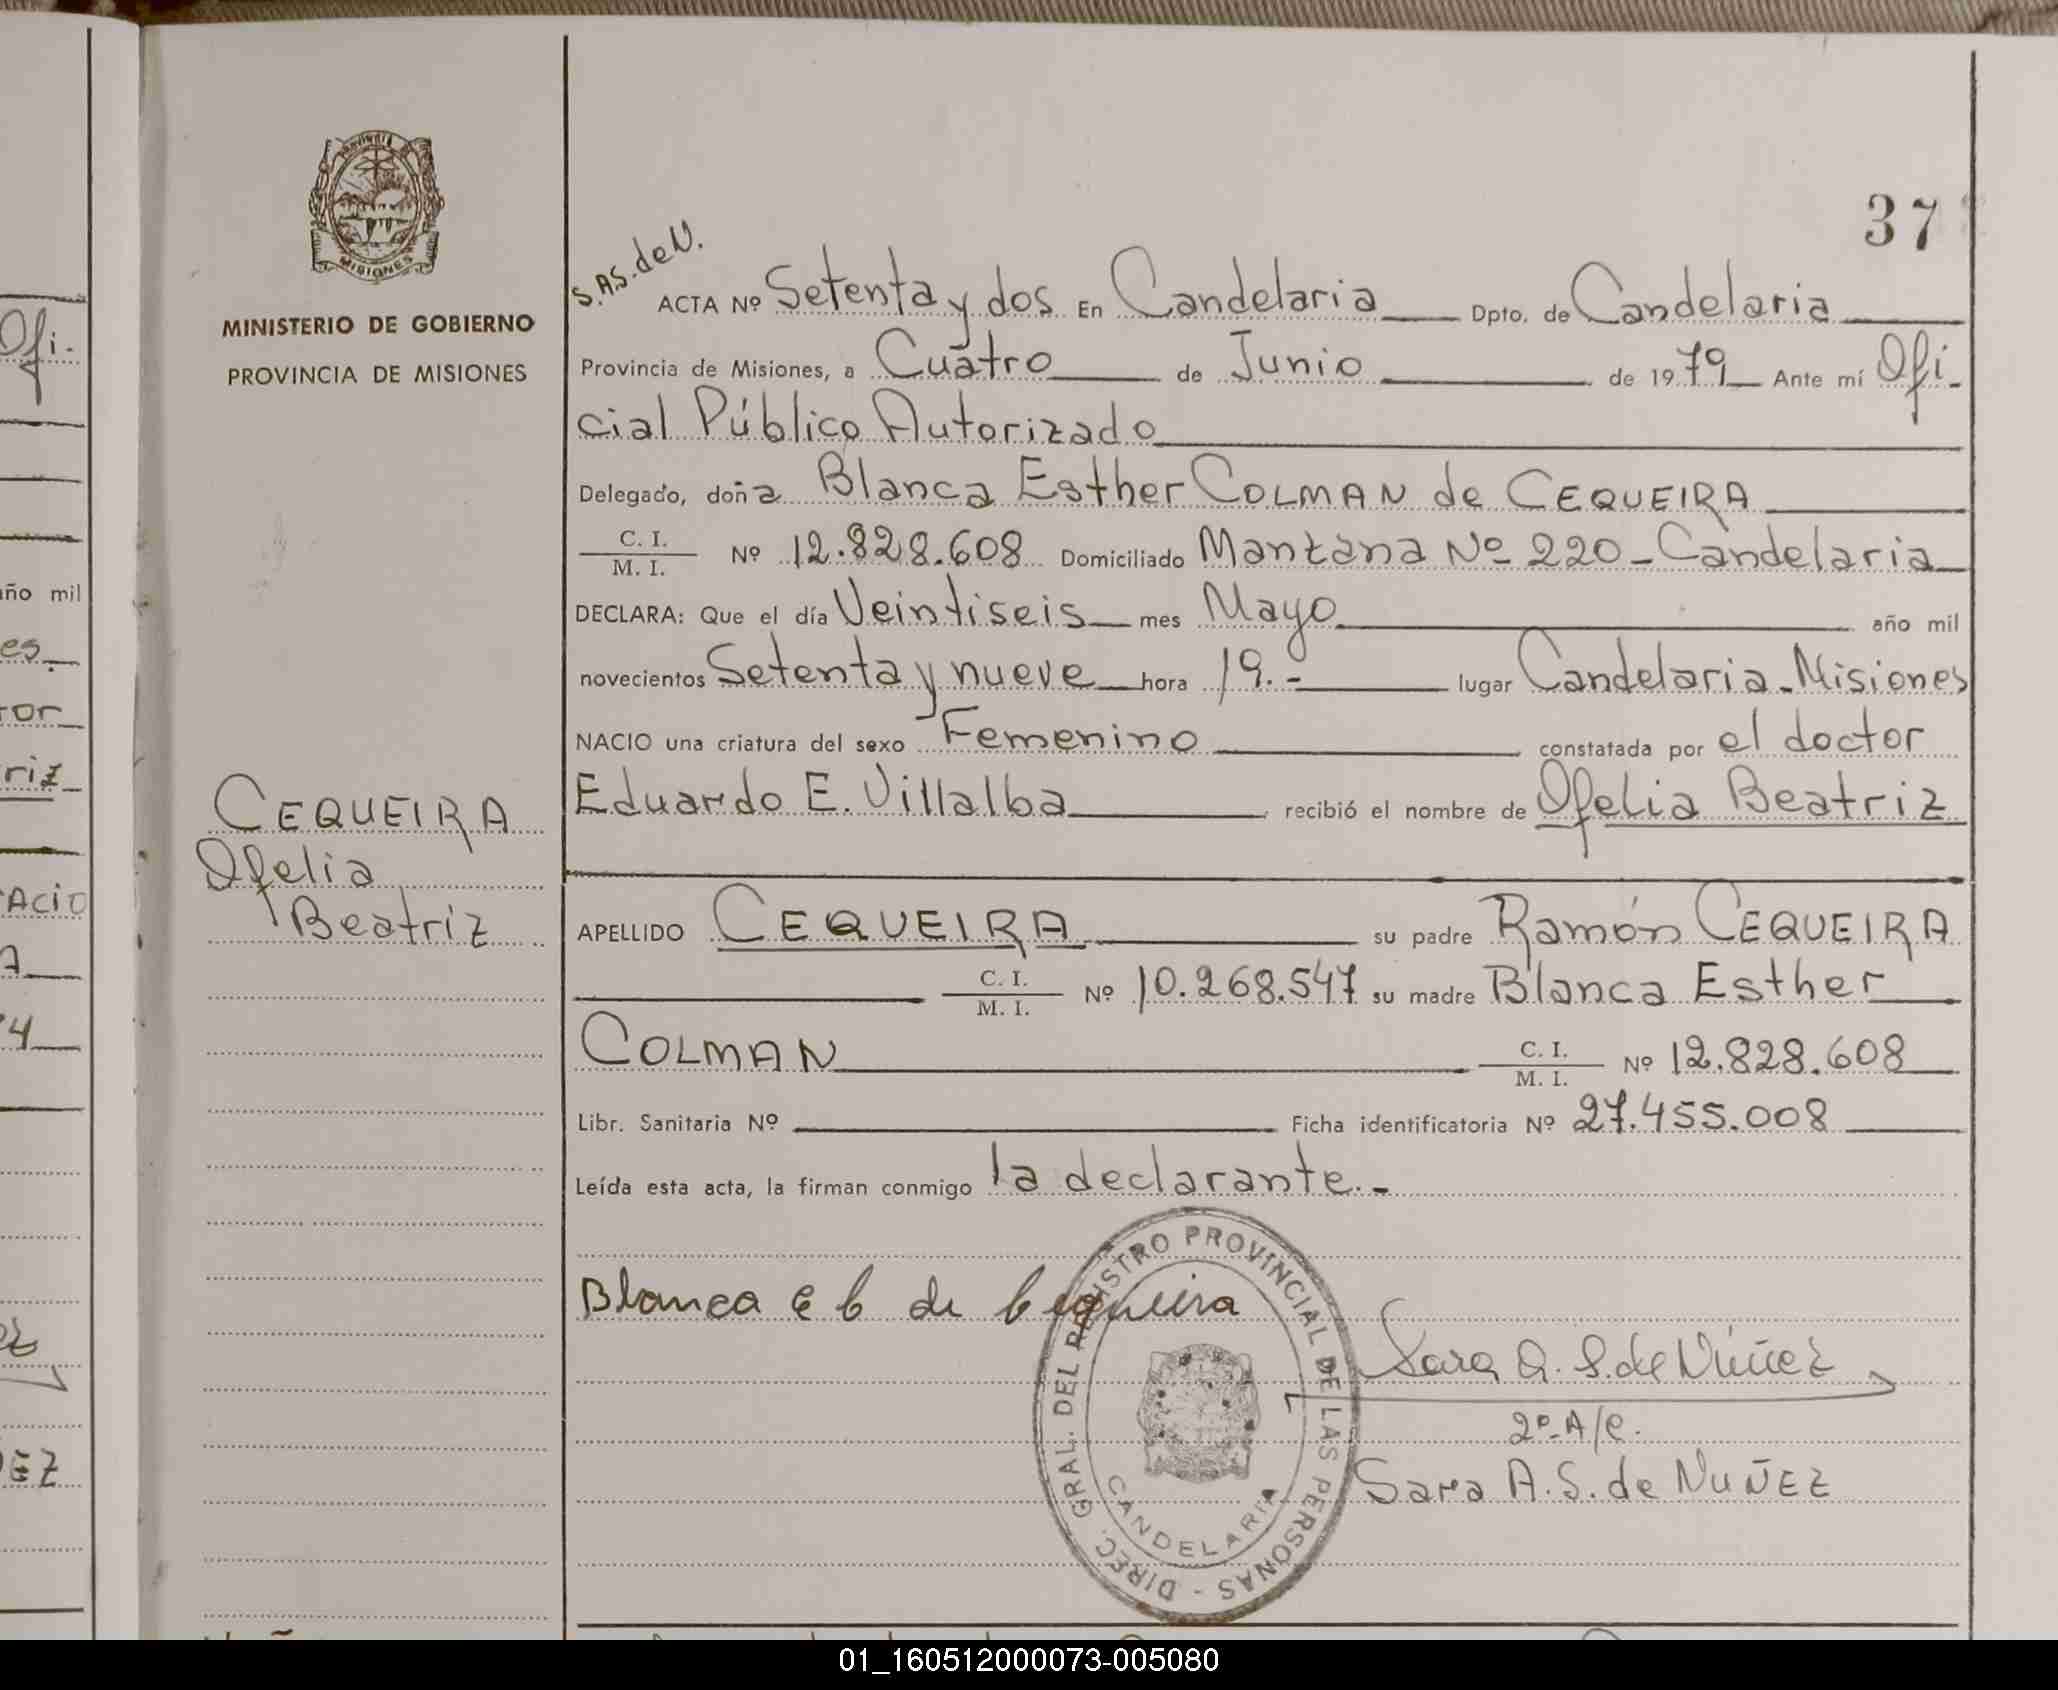 37
PROVINCIA DE
MISIONES
MINISTERIO DE GOBIERNO
PROVINCIA DE MISIONES
CEQUEIRA
Ofelia
Beatriz
S.A.S. de N.
ACTA Nº Setenta y dos En Candelaria Dpto. de Candelaria
Provincia de Misiones, a Cuatro de Junio de 1979 Ante mí Ofi-
cial Público Autorizado
Delegado, doña Blanca Esther COLMAN de CEQUEIRA
C. I.
M. I. Nº 12.828.608 Domiciliado Manzana Nº 220 - Candelaria
DECLARA: Que el día Veintiseis mes Mayo año mil
novecientos Setenta y nueve hora 19.- lugar Candelaria - Misiones
NACIO una criatura del sexo Femenino constatada por el doctor
Eduardo E. Villalba recibió el nombre de Ofelia Beatriz
APELLIDO CEQUEIRA su padre Ramón CEQUEIRA
C. I.
M. I. Nº 10.268.547 su madre Blanca Esther
COLMAN C. I.
M. I. Nº 12.828.608
Libr. Sanitaria Nº Ficha identificatoria Nº 27.455.008
Leída esta acta, la firman conmigo la declarante.-
Blanca E C de Cequeira
DIREC. GRAL. DEL REGISTRO PROVINCIAL DE LAS PERSONAS -
CANDELARIA
Sara A. S. de Núñez
2º A/C.
Sara A. S. de NUÑEZ
Ofi-
año mil
es.
tor
riz
ACIO
A
4
EZ
01_160512000073-005080